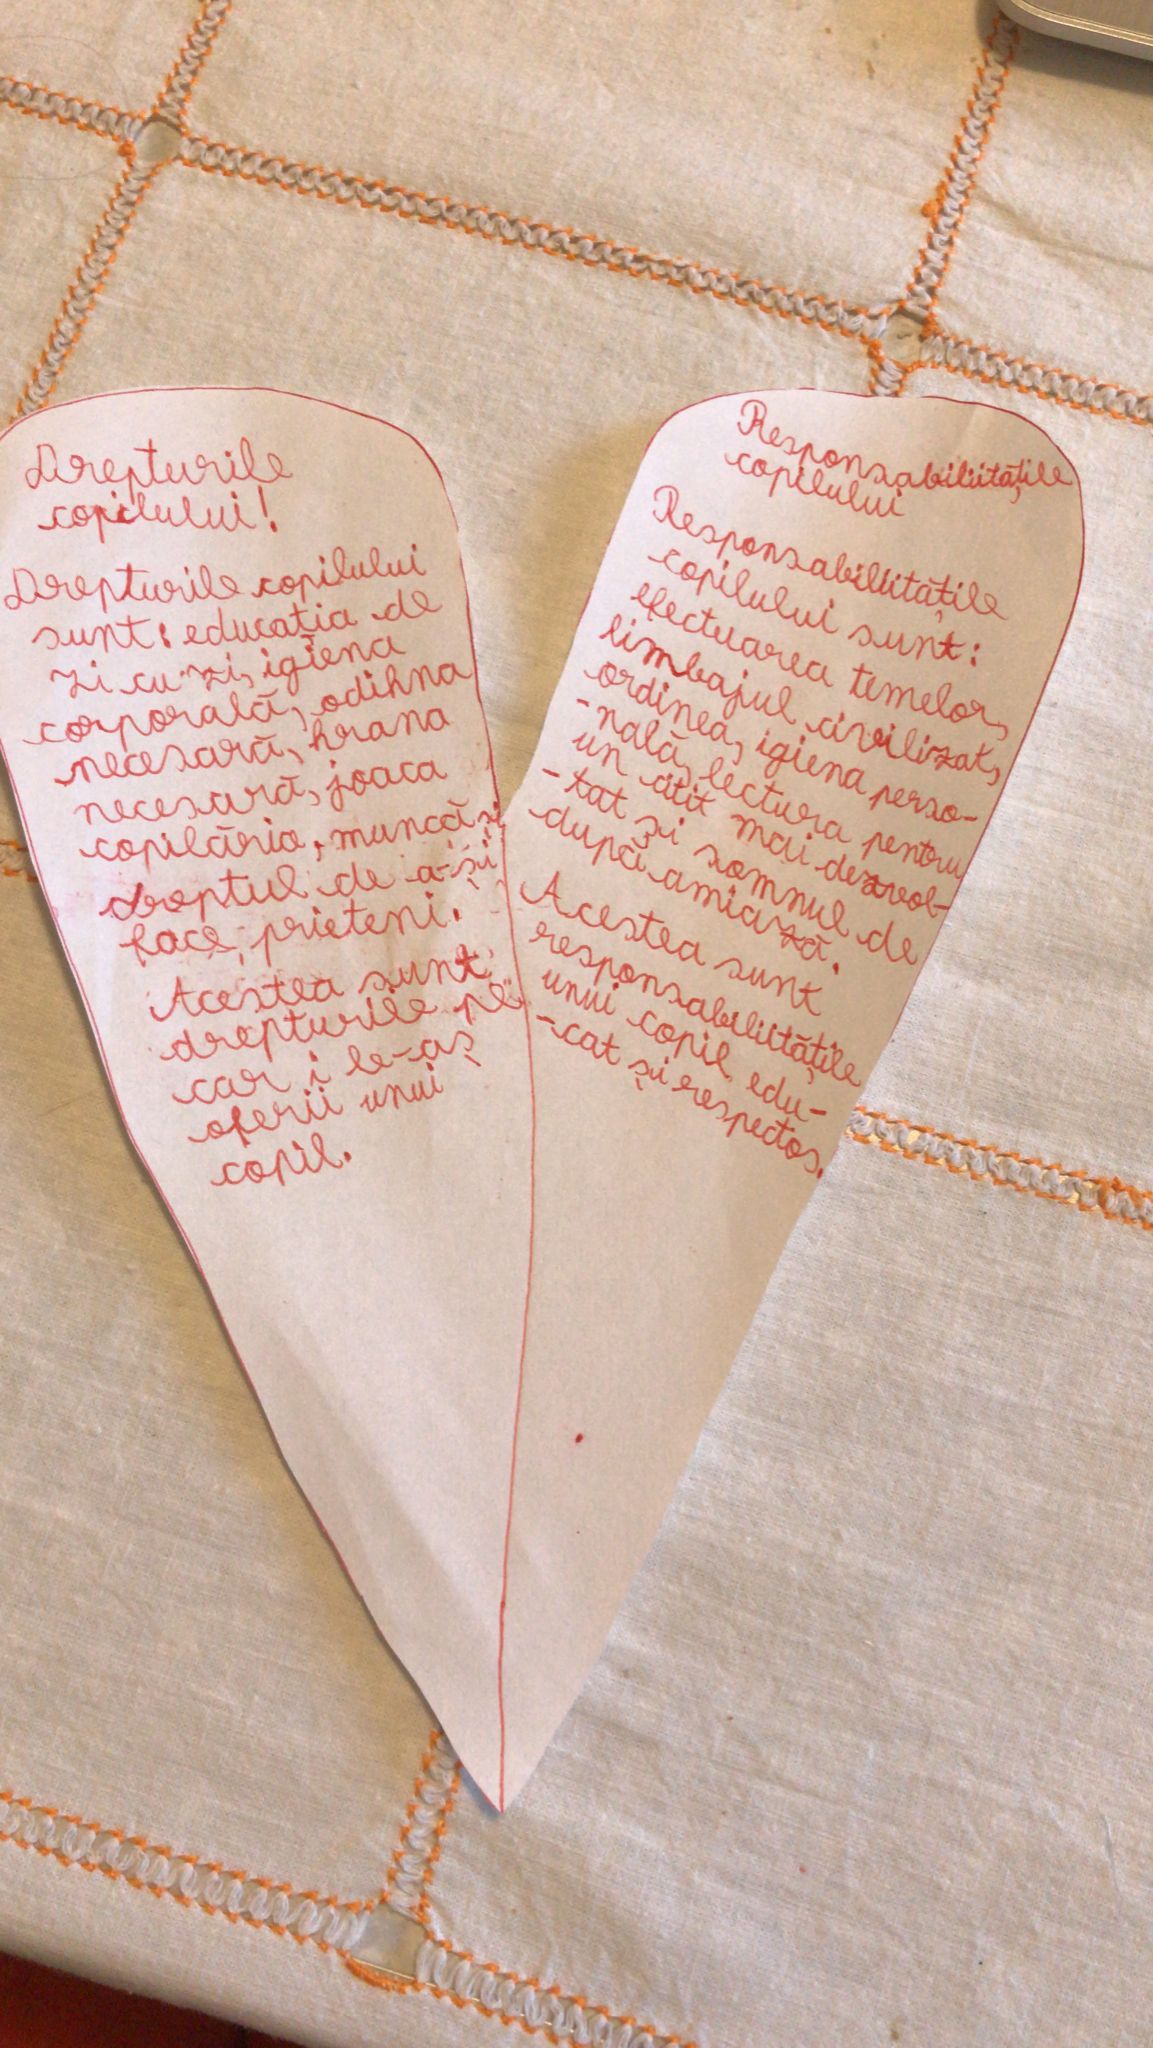 Drepturile
copilului!
Drepturile copilului
sunt: educația de
zi cu zi, igiena
corporală, odihna
necesară, hrana
necesară, joaca
copilăria, muncă și
dreptul de a-și
face prieteni.
Acestea sunt
drepturile pe
car i le-aș
oferii unui
copil.
Responsabiliitățile
copilului
Responsabiliitățile
copilului sunt:
efectuarea temelor,
limbajul civilizat,
ordinea, igiena perso-
-nală, lectura pentru
un citit mai dezvol-
-tat și somnul de
după amiază.
Acestea sunt
responsabiliitățile
unui copil edu-
-cat și respectos.